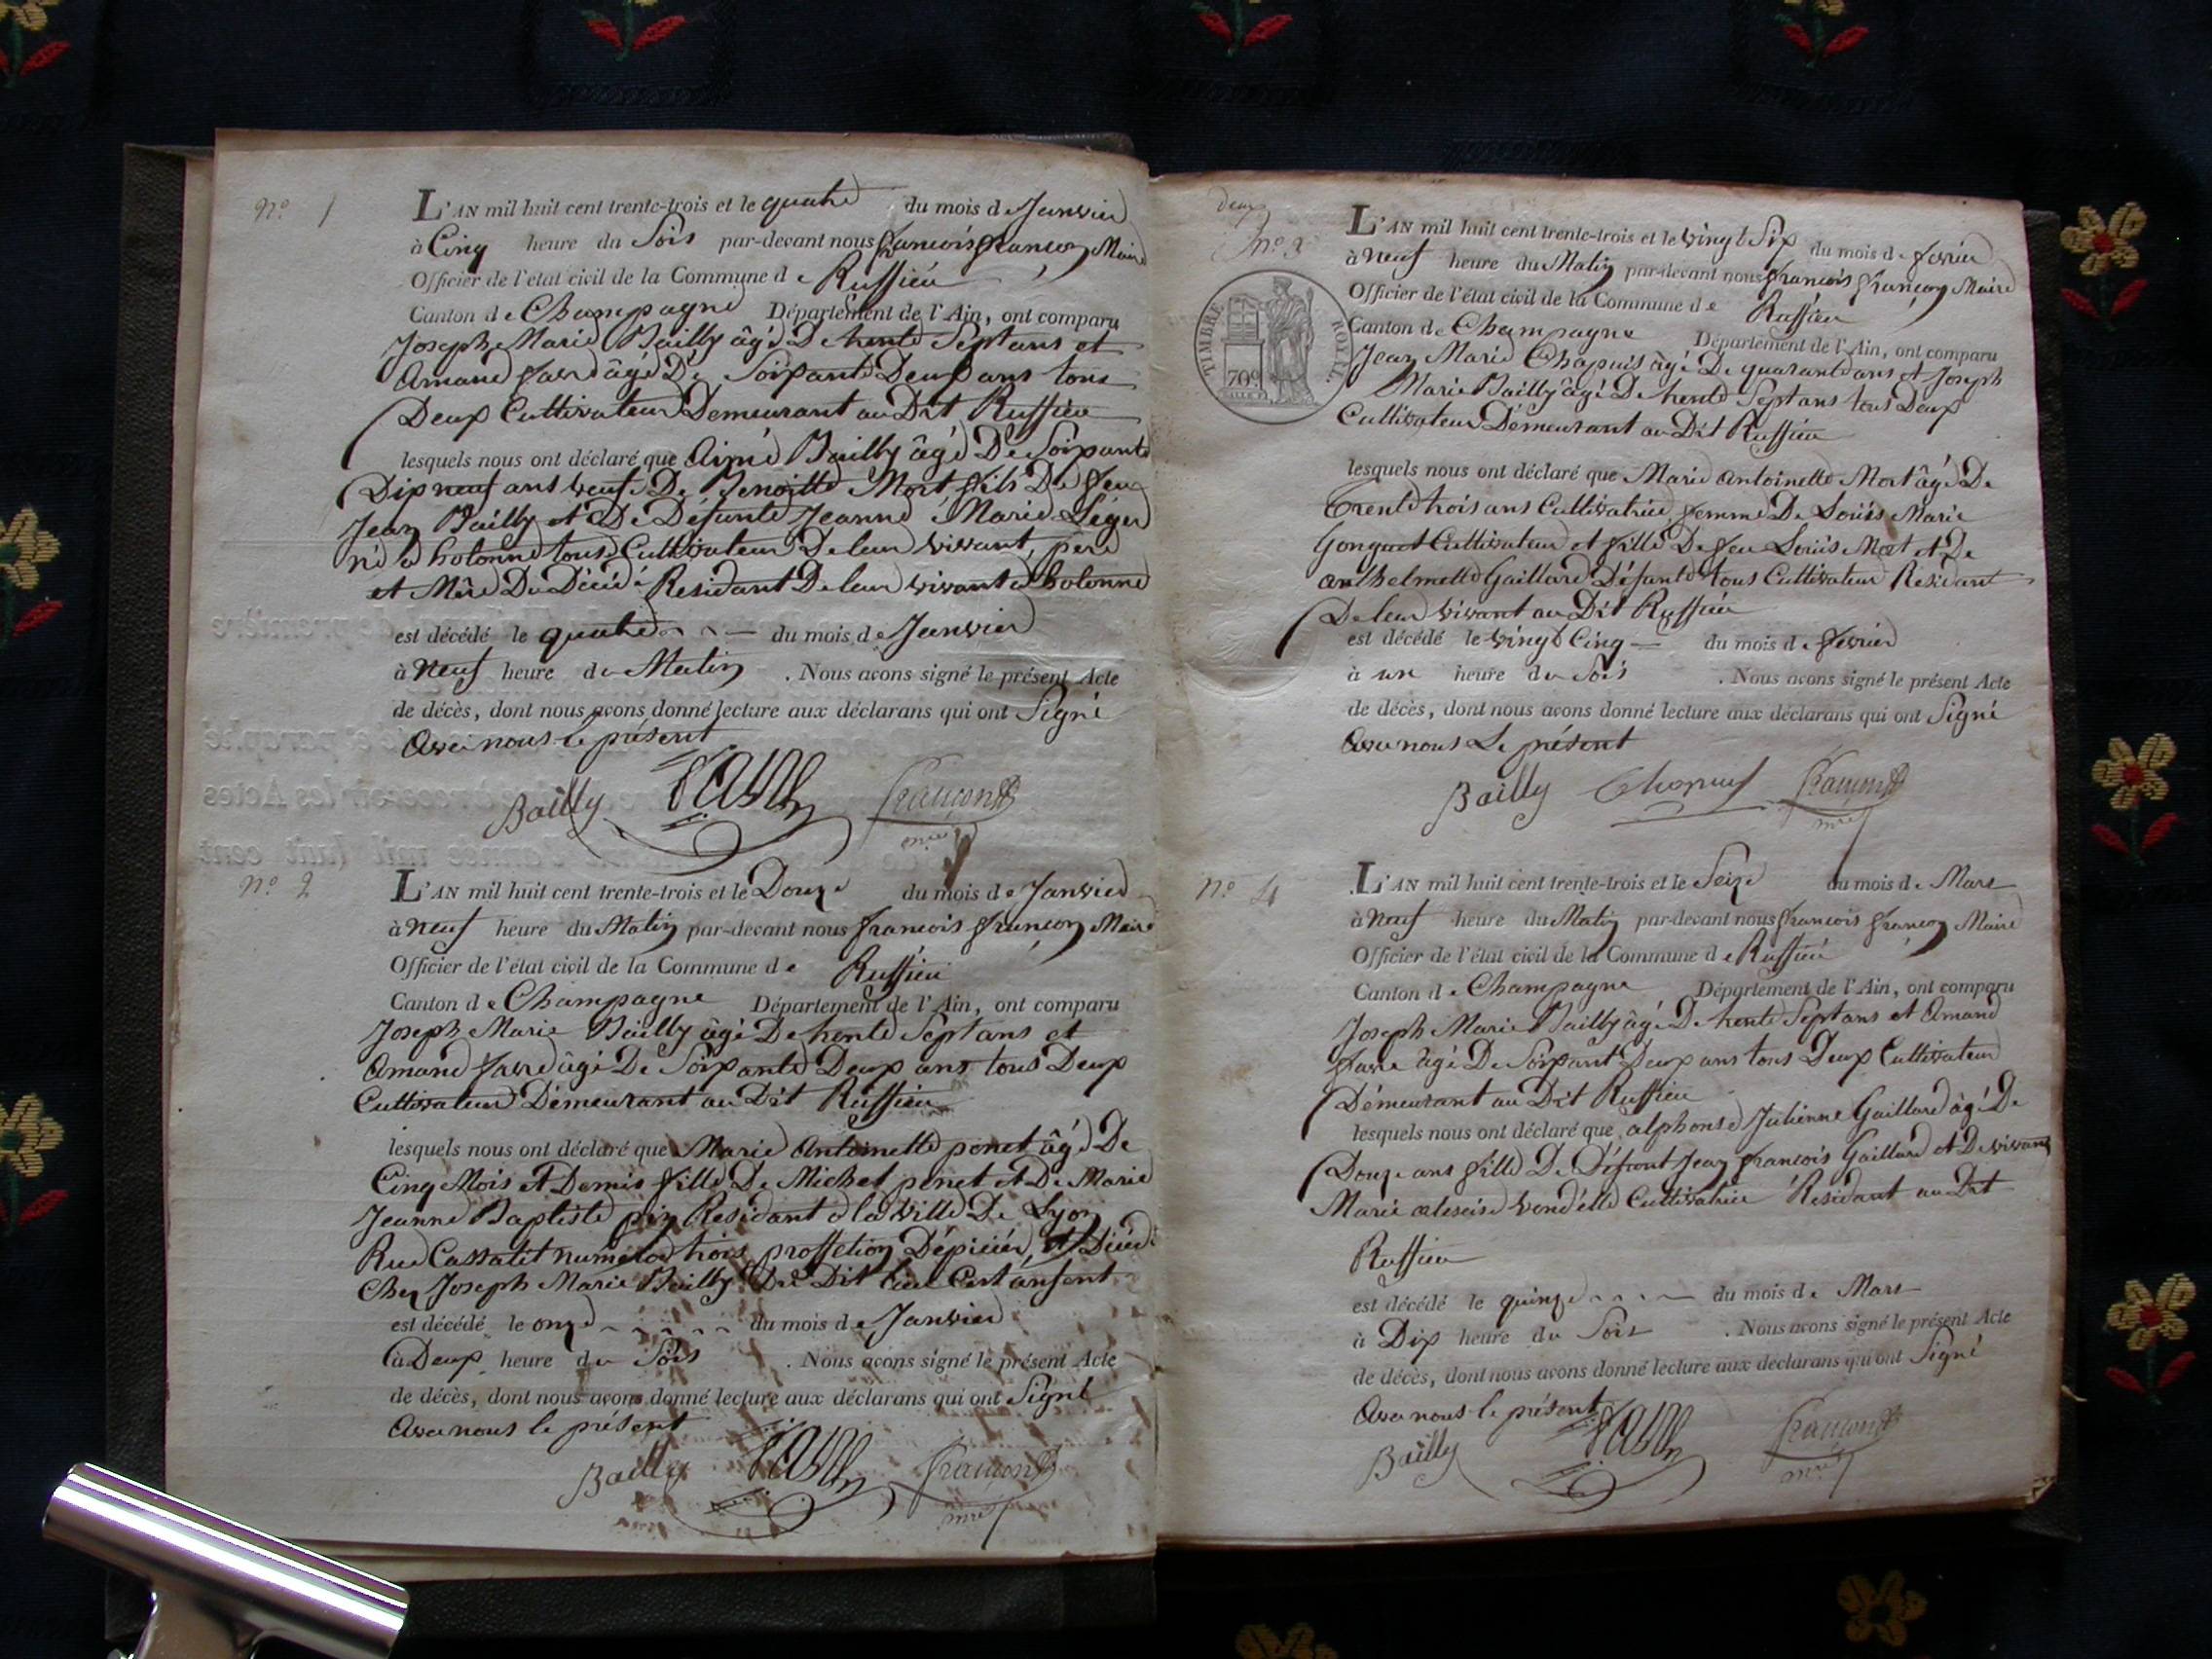 nº 1
L'AN mil huit cent trente-trois et le quatre du mois de Janvier
à Cinq heure du Soir par-devant nous francois françon Maire
Officier de l'état civil de la Commune de Ruffieu
Canton de Champagne Département de l'Ain, ont comparu
Joseph Marie Bailly âgé De trente Sept ans et
Amand favre âgé De Soixante Deux ans tous
Deux Cultivateur Demeurant au Dit Ruffieu
lesquels nous ont déclaré que Aimé Bailly âgé De Soixante
Dix neuf ans veuf De Benoitte Mort fils De feu
Jean Bailly et De Défunte Jeanne Marie Léger
né a hotonne tous Cultivateur De leur vivant, père
et Mère Du Décédé Residant De leur vivant a hotonne
est décédé le quatre du mois de Janvier
à Neuf heure du Matin . Nous avons signé le présent Acte
de décès, dont nous avons donné lecture aux déclarans qui ont Signé
Avec nous le présent
Bailly favre françon mre
nº 2
L'AN mil huit cent trente-trois et le Douze du mois de Janvier
à Neuf heure du Matin par-devant nous francois françon Maire
Officier de l'état civil de la Commune de Ruffieu
Canton de Champagne Département de l'Ain, ont comparu
Joseph Marie Bailly âgé De trente Sept ans et
Amand favre âgé De Soixante Deux ans tous Deux
Cultivateur Demeurant au Dit Ruffieu
lesquels nous ont déclaré que Marie Antoinette penet âgé De
Cinq Mois Et Demis fille De Michel penet et De Marie
Jeanne Baptiste pin Residant a la ville De Lyon
Rue numéro trois proffetion D'épiciér, et Décédé
Chez Joseph Marie Bailly Du Dit lieu Cest ânfent
est décédé le onze du mois de Janvier
à Deux heure du Soir . Nous avons signé le présent Acte
de décès, dont nous avons donné lecture aux déclarans qui ont Signé
Avec nous le présent
Bailly favre françon mre
deux
nº 3
TIMBRE ROYAL
70c
L'AN mil huit cent trente-trois et le vingt Six du mois de fevrier
à Neuf heure du Matin par-devant nous francois françon Maire
Officier de l'état civil de la Commune de Ruffieu
Canton de Champagne Département de l'Ain, ont comparu
Jean Marie Chapuis âgé De quarante ans et Joseph
Marie Bailly âgé De trente Sept ans tous Deux
Cultivateur Demeurant au Dit Ruffieu
lesquels nous ont déclaré que Marie Antoinette Mort âgé De
Trente trois ans Cultivatrice femme De Louis Marie
Gonguet Cultivateur et fille De feu Louis Mort et De
anthelmette Gaillard Défunte tous Cultivateur Residant
De leur vivant au Dit Ruffieu
est décédé le vingt Cinq du mois de fevrier
à un heure du Soir . Nous avons signé le présent Acte
de décès, dont nous avons donné lecture aux déclarans qui ont Signé
Avec nous Le présent
Bailly Chapuis françon mre
nº 4
L'AN mil huit cent trente-trois et le Seize du mois de Mars
à Neuf heure du Matin par-devant nous francois françon Maire
Officier de l'état civil de la Commune de Ruffieu
Canton de Champagne Département de l'Ain, ont comparu
Joseph Marie Bailly âgé De trente Sept ans et Amand
favre âgé De Soixant Deux ans tous Deux Cultivateur
Démeurant au Dit Ruffieu
lesquels nous ont déclaré que alphonse Julienne Gaillard âgé De
Douze ans fille De Défeunt Jean francois Gaillard et De vivant
Marie Cultivatrice Residant au Dit
Ruffieu
est décédé le quinze du mois de Mars
à Dix heure du Soir . Nous avons signé le présent Acte
de décès, dont nous avons donné lecture aux déclarans qui ont Signé
Avec nous le présent
Bailly favre françon mre